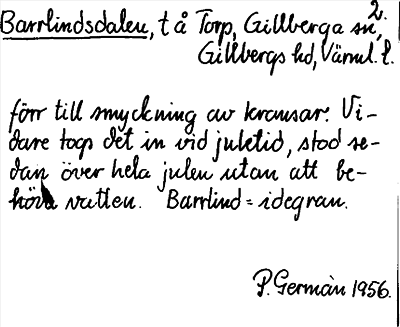 Barrlindsdalen, t å Torp, Gillberga sn, 2.
Gillbergs hd, Värml. l.
förr till smyckning av kransar. Vi-
dare togs det in vid juletid, stod se-
dan över hela julen utan att be-
höva vatten. Barrlind = idegran.
P. Germàn 1956.